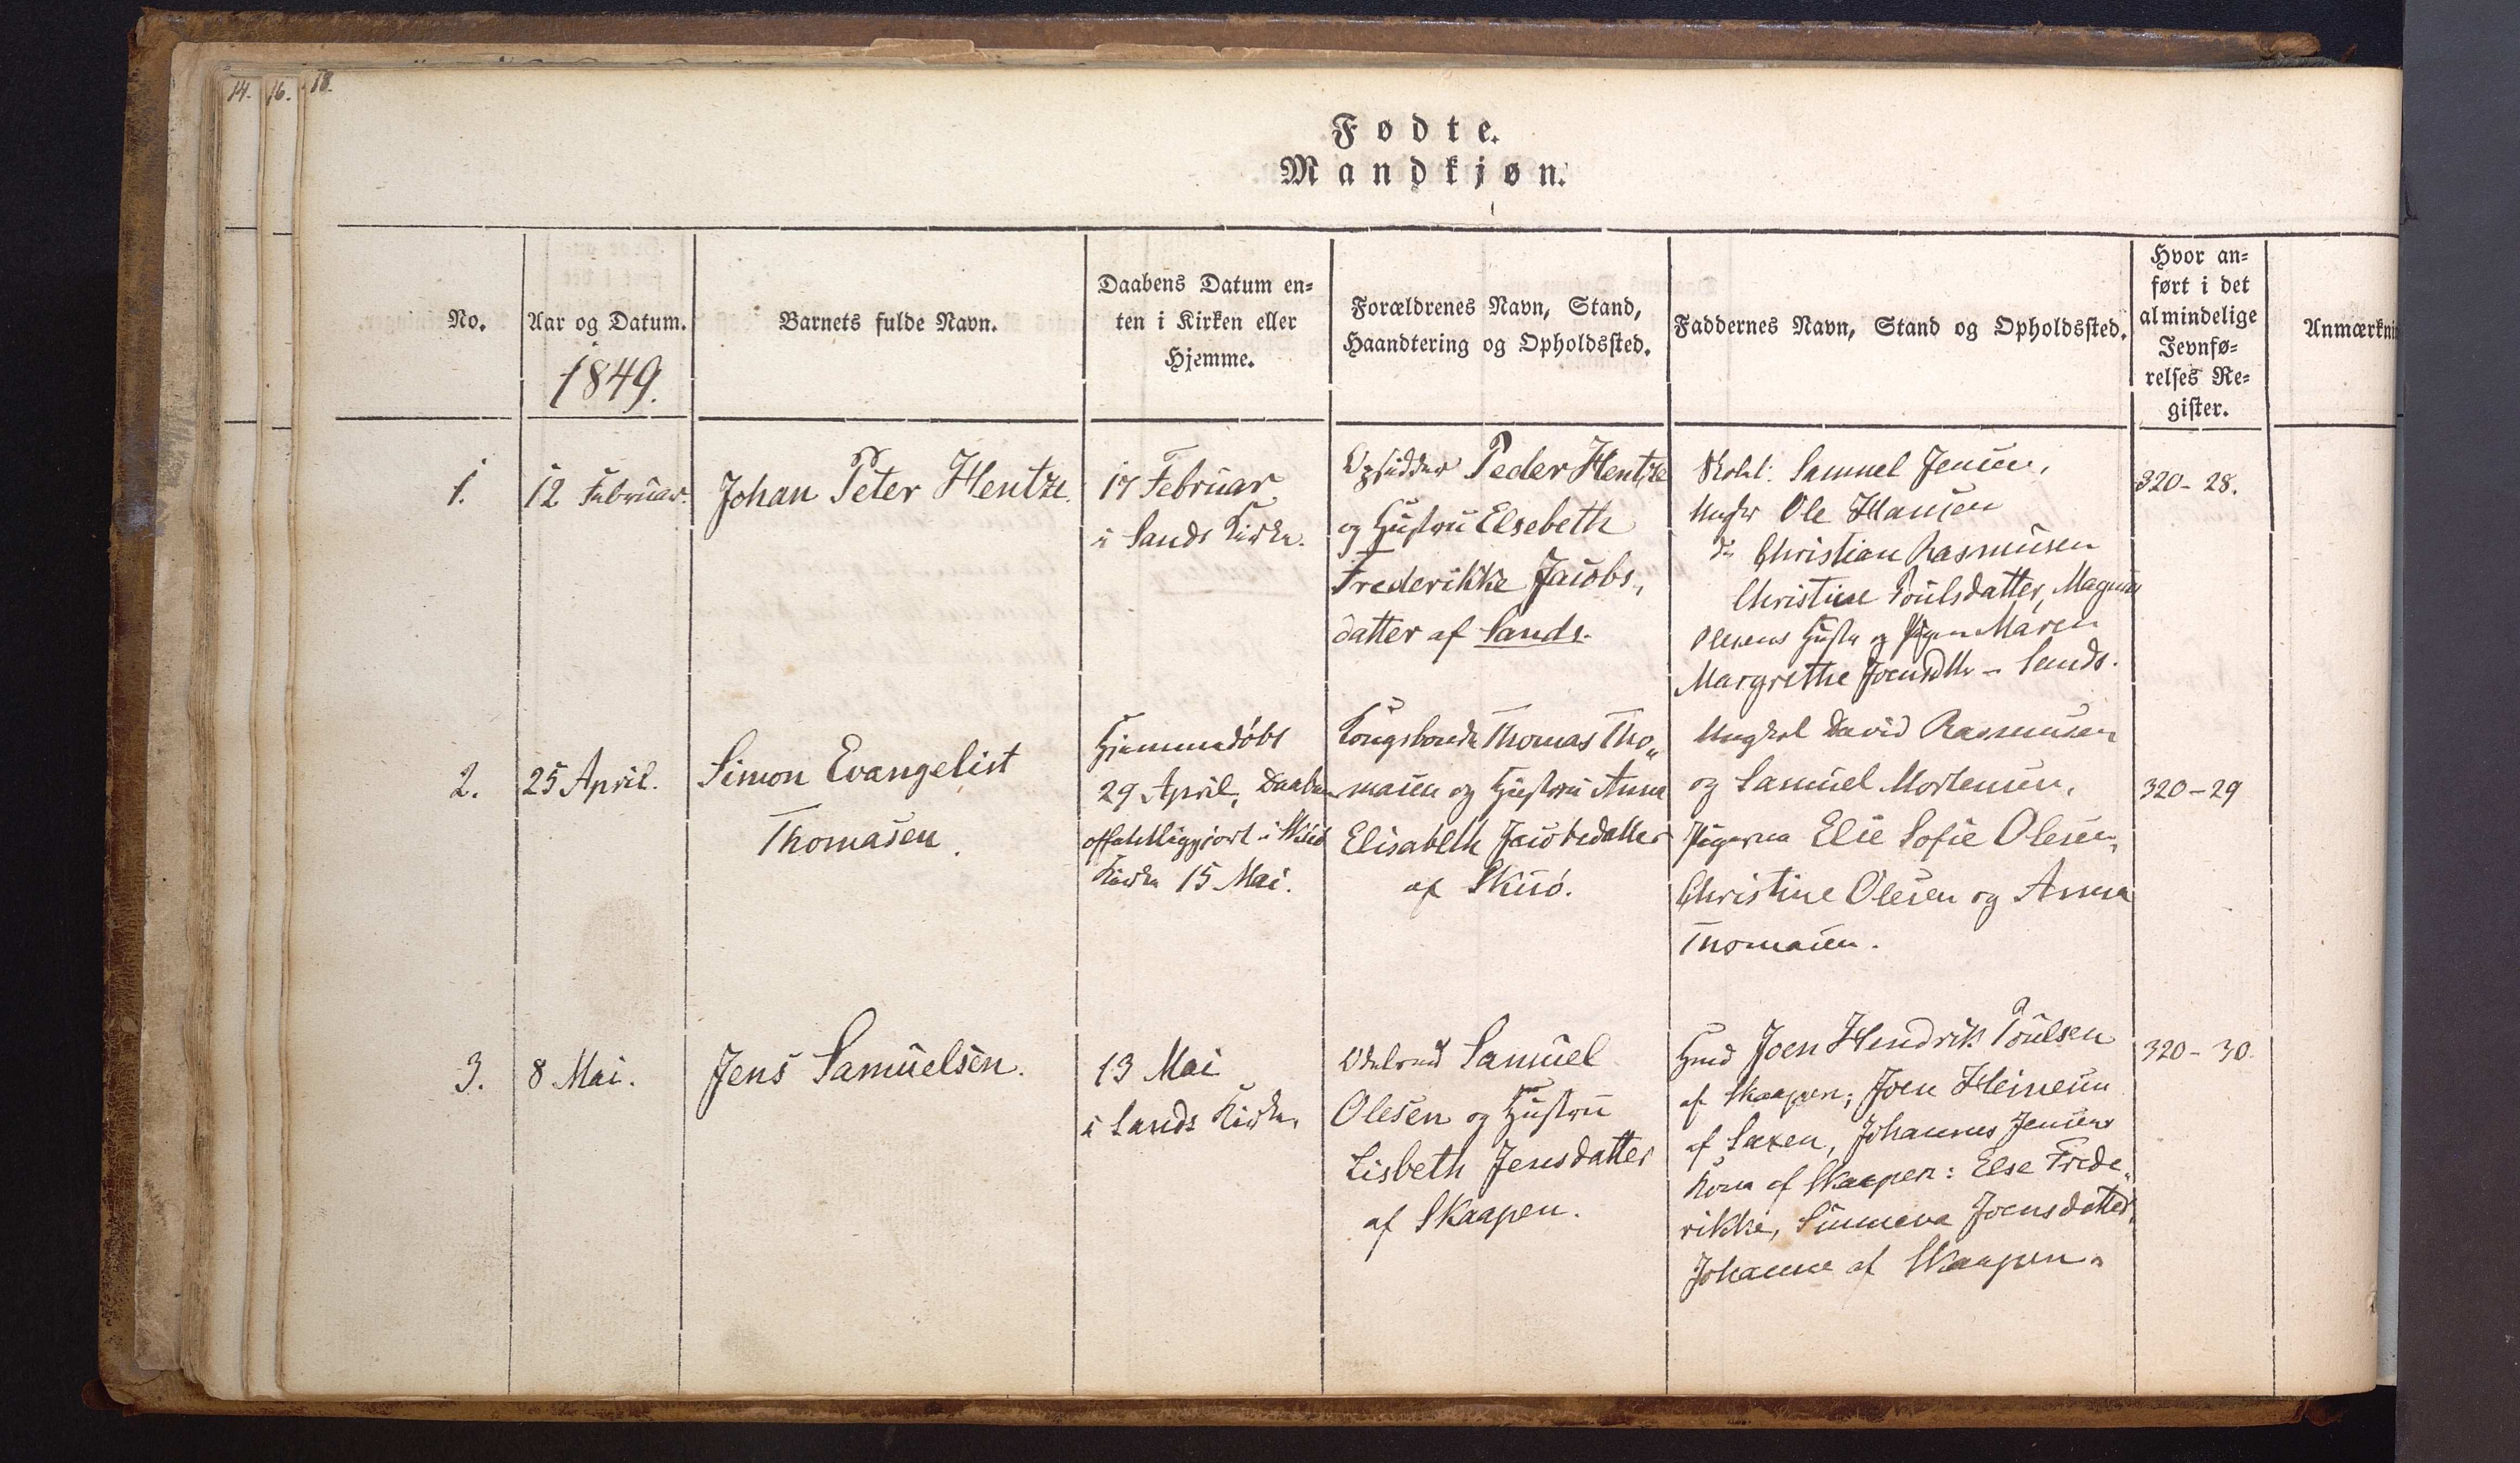 14. 16. 18.
Fødte.
Mandkjøn.
No.
Aar og Datum.
1849.
Barnets fulde Navn.
Daabens Datum en=
ten i Kirken eller
Hjemme.
Forældrenes Navn, Stand,
Haandtering og Opholdssted.
Faddernes Navn, Stand og Opholdssted.
Hvor an=
ført i det
almindelige
Jevnfø=
relses Re=
gister.
Anmærknin
1.
12 Februar.
Johan Peter Hentze.
17 Februar
i Sands Kirke.
Opsidder Peder Hentze
og Hustru Elsebeth
Frederikke Jacobs,
datter af Sands.
Samuel Jensen,
Ole Hansen
Christian Rasmusen
Christine Poulsdatter, Magnus
Olesens Hustr og Pigen Maren
Margrethe Joensdttr - Sands.
320- 28.
2.
25 April.
Simon Evangelist
Thomasen.
Hjemmedøbt
29 April, Daaben
offentliggjort i Skuø
Kirke 15 Mai.
Kongsbonde Thomas Tho„
masen og Hustru Anna
Elisabeth Jacobsdatter
af Skuø.
Ungkarl David Rasmusen
og Samuel Mortensen,
Pigerna Else Sofie Olesen,
Christine Olesen og Anna
Thomasen.
320-29
3.
8 Mai.
Jens Samuelsen.
13 Mai
i Sands Kirke.
Samuel
Olesen og Hustru
Lisbeth Jensdatter
af Skaapen.
Joen Hendrik Poulsen
af Skaapen; Joen Heinesen
af Saxen, Johannes Jensens
Kona af Skaapen: Else Frede„
rikke, Sunneva Joensdatter,
Johanne af Skaapen.
320- 30.